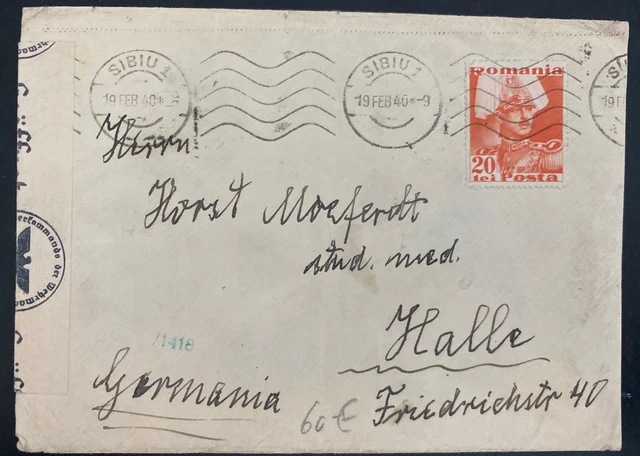 SIBIU 1
19 FEB 40 *-9
SIBIU 1
19 FEB 40 *-9
Romania
20
lei Posta
Herrn
Horst
stud. med.
Halle
/1418
Germania
60 €
Friedrichstr 40